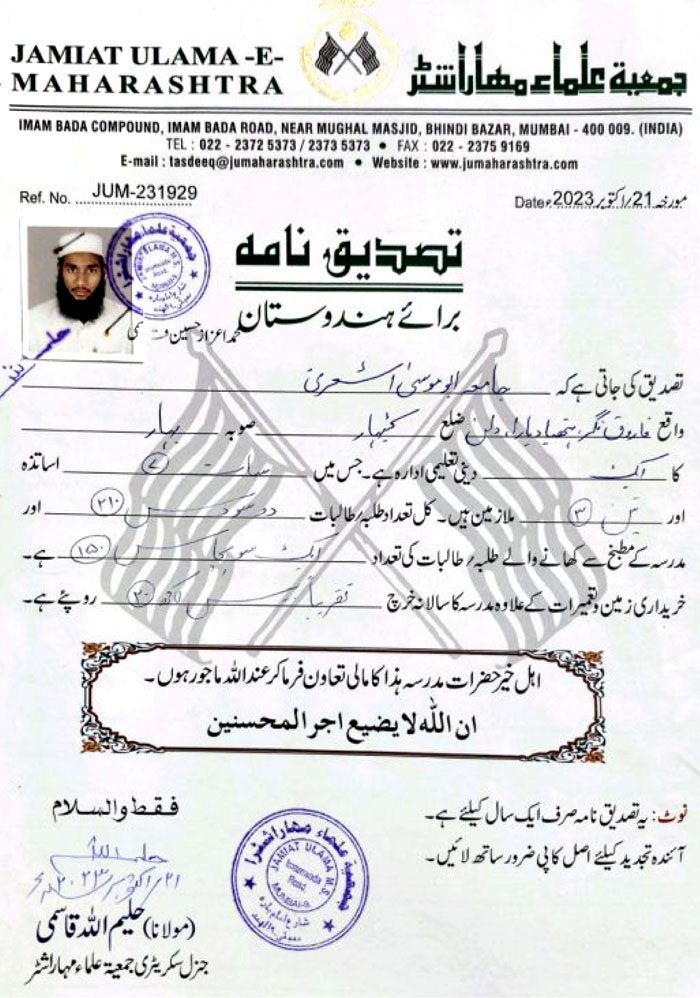 JAMIAT ULAMA -E-
MAHARASHTRA
جمعیۃ علماء مہاراشٹر
IMAM BADA COMPOUND, IMAM BADA ROAD, NEAR MUGHAL MASJID, BHINDI BAZAR, MUMBAI - 400 009. (INDIA)
TEL : 022 - 2372 5373 / 2373 5373 • FAX : 022 - 2375 9169
E-mail : tasdeeq@jumaharashtra.com • Website : www.jumaharashtra.com
Ref. No. JUM-231929
Date مورخہ 21/اکتوبر 2023ء
تصدیق نامہ
برائے ہندوستان
محمد اعزاز حسین
تصدیق کی جاتی ہے کہ جامعہ ابو موسیٰ اشعری
واقع فاروق نگر، ضلع کٹیہار صوبہ بہار
کا ایک دینی تعلیمی ادارہ ہے۔ جس میں سات (۷) اساتذہ
اور تین (۳) ملازمین ہیں۔ کل تعداد طلبہ/طالبات دو سو دس (۲۱۰) اور
مدرسہ کے مطبخ سے کھانے والے طلبہ/طالبات کی تعداد ایک سو پچاس (۱۵۰) ہے۔
خریداری زمین و تعمیرات کے علاوہ مدرسہ کا سالانہ خرچ تقریباً لاکھ روپئے ہے۔
اہل خیر حضرات مدرسہ ہذا کا مالی تعاون فرما کر عند اللہ ماجور ہوں۔
ان اللہ لا یضیع اجر المحسنین
نوٹ: یہ تصدیق نامہ صرف ایک سال کیلئے ہے۔
آئندہ تجدید کیلئے اصل کاپی ضرور ساتھ لائیں۔
فقط والسلام
۲۱/اکتوبر ۲۰۲۳ء
(مولانا) حلیم اللہ قاسمی
جنرل سکریٹری جمعیۃ علماء مہاراشٹر
جمعیۃ علماء مہاراشٹرا
JAMIAT ULAMA M.S.
Imamwada
Road,
MUMBAI-9.